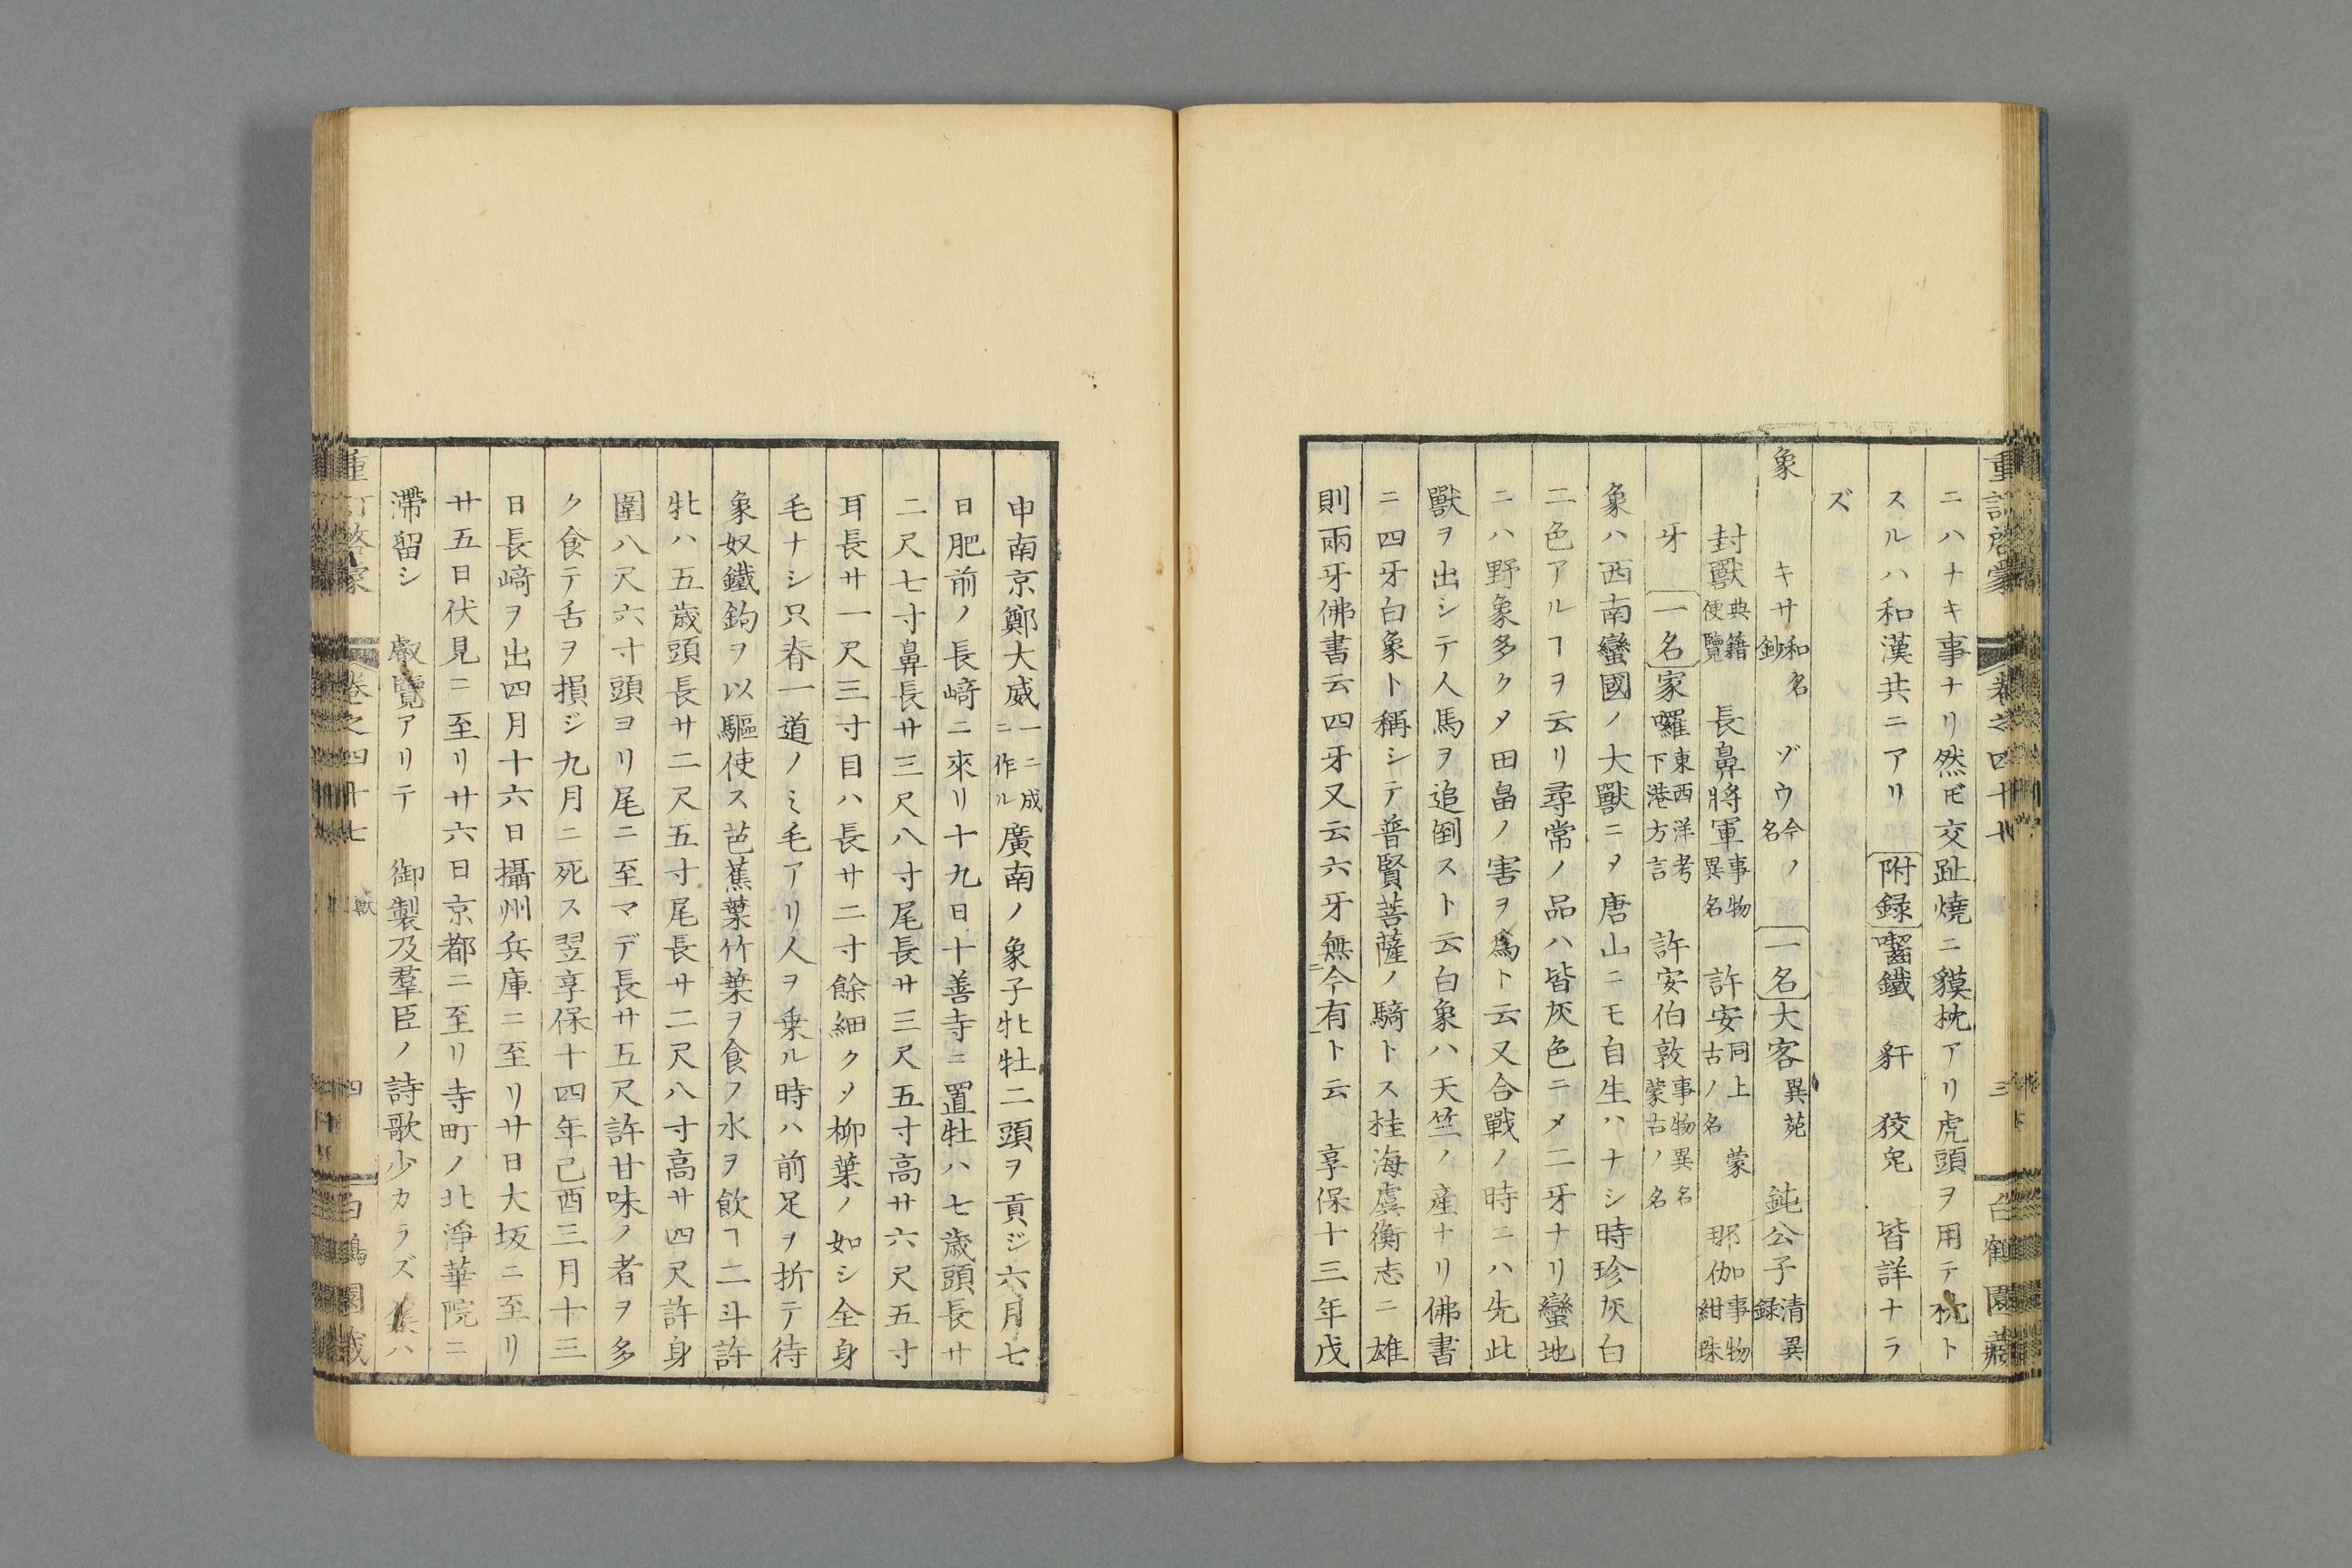 ニハナキ事ナリ然𪜈交趾燒ニ貘枕アリ虎頭ヲ用テ枕ト
スルハ和漢共ニアリ 附録 齧鐵 豻 狡兔 皆詳ナラ
ズ
象 キサ 和名鈔 ゾウ 今ノ名 一名 大客 異苑 鈍公子 清異録
封獸 典籍便覽 長鼻將軍 事物異名 許安 同上蒙古ノ名 那伽 事物紺珠
牙 一名 家囉 東西洋考下港方言 許安伯敦 事物異名蒙古ノ名
象ハ西南蠻國ノ大獸ニ〆唐山ニモ自生ハナシ時珍灰白
二色アルヿヲ云リ尋常ノ品ハ皆灰色ニ〆二牙ナリ蠻地
ニハ野象多ク〆田畠ノ害ヲ爲ト云又合戰ノ時ニハ先此
獸ヲ出シテ人馬ヲ追倒スト云白象ハ天竺ノ産ナリ佛書
ニ四牙白象ト稱シテ普賢菩薩ノ騎トス桂海虞衡志ニ雄
則兩牙佛書云四牙又云六牙無今有ト云 享保十三年戊
申南京鄭大威 一ニ成ニ作ル 廣南ノ象子牝牡二頭ヲ貢ジ六月七
日肥前ノ長﨑ニ來リ十九日十善寺ニ置牡ハ七歳頭長サ
二尺七寸鼻長サ三尺八寸尾長サ三尺五寸高サ六尺五寸
耳長サ一尺三寸目ハ長サ二寸餘細ク〆柳葉ノ如シ全身
毛ナシ只脊一道ノミ毛アリ人ヲ乗ル時ハ前足ヲ折テ待
象奴鐵鉤ヲ以驅使ス芭蕉葉竹葉ヲ食フ水ヲ飲ヿ二斗許
牝ハ五歳頭長サ二尺五寸尾長サ二尺八寸高サ四尺許身
圍八尺六寸頭ヨリ尾ニ至マデ長サ五尺許甘味ノ者ヲ多
ク食テ舌ヲ損ジ九月ニ死ス翌享保十四年己酉三月十三
日長﨑ヲ出四月十六日攝州兵庫ニ至リサ日大坂ニ至リ
廿五日伏見ニ至リ廿六日京都ニ至リ寺町ノ北淨華院ニ
滯留シ 叡覽アリテ 御製及羣臣ノ詩歌少カラズ集ハ